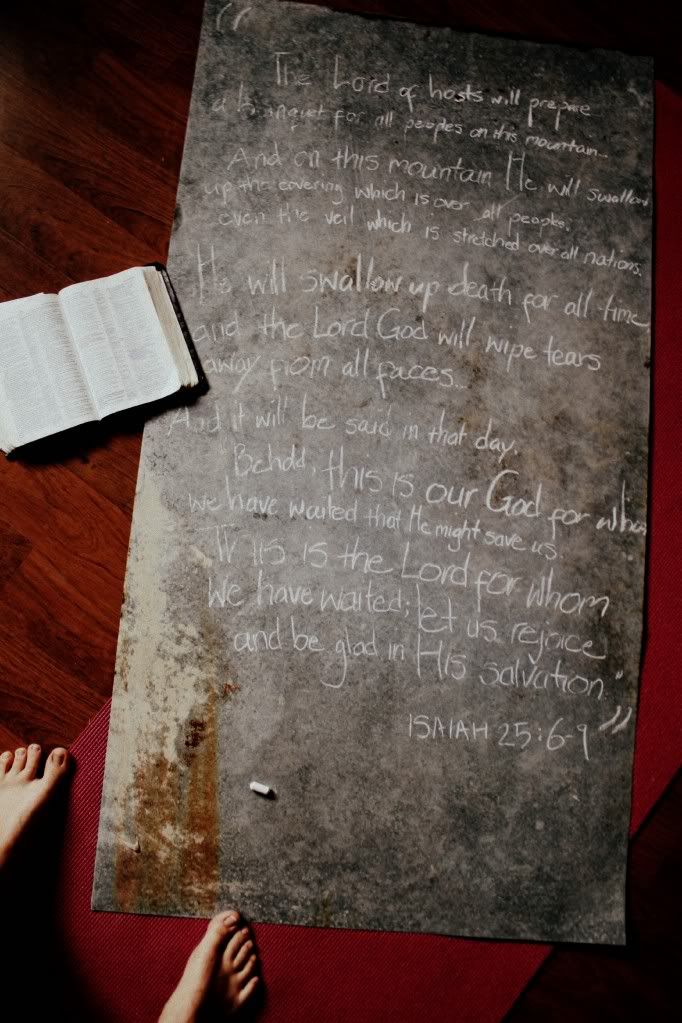 “
The Lord of hosts will prepare
a banquet for all peoples on this mountain...
And on this mountain He will swallow
up the covering which is over all peoples,
even the veil which is stretched over all nations.
He will swallow up death for all time,
and the Lord God will wipe tears
away from all faces...
And it will be said in that day,
"Behold, this is our God for whom
we have waited that He might save us.
This is the Lord for whom
we have waited; let us rejoice
and be glad in His salvation."
”
ISAIAH 25:6-9